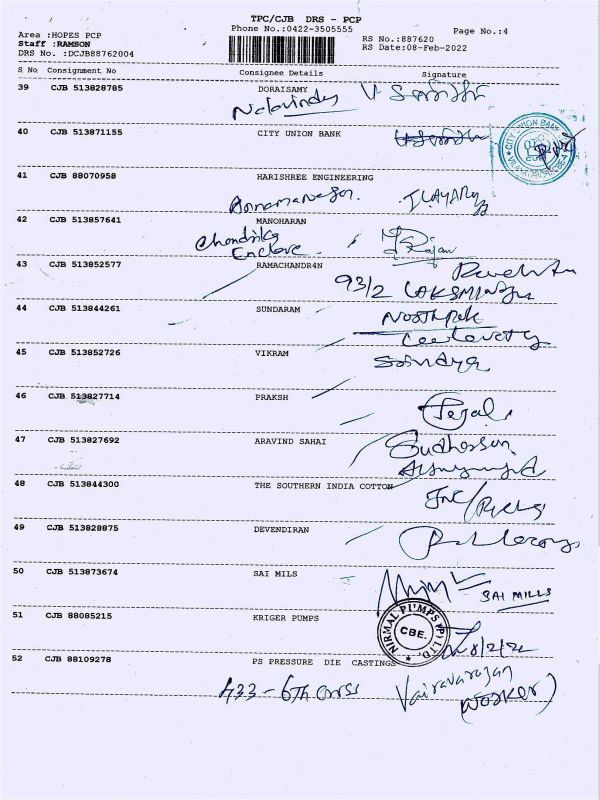 TPC/CJB DRS - PCP
Phone No.:0422-3505555
Page No.:4
Area :HOPES PCP
RS No.:887620
Staff :RAMSON
RS Date:08-Feb-2022
DRS No. :DCJB88762004
S No Consignment No Consignee Details Signature
39 CJB 513828785 DORAISAMY
40 CJB 513871155 CITY UNION BANK
CITY UNION BANK
41 CJB 88070958 HARISHREE ENGINEERING
Annamanagar.
42 CJB 513857641 MANOHARAN
Chandrika
Enclave
Rajan
43 CJB 513852577 RAMACHANDR4N
93/2
44 CJB 513844261 SUNDARAM
45 CJB 513852726 VIKRAM
46 CJB 513827714 PRAKSH
47 CJB 513827692 ARAVIND SAHAI
48 CJB 513844300 THE SOUTHERN INDIA COTTON
49 CJB 513828875 DEVENDIRAN
50 CJB 513873674 SAI MILS
SAI MILLS
51 CJB 88085215 KRIGER PUMPS
NIRMAL PUMPS (P) LTD.
CBE.
8/2/22
52 CJB 88109278 PS PRESSURE DIE CASTINGS
433 - 6th cross
Vairavarajan
(worker)